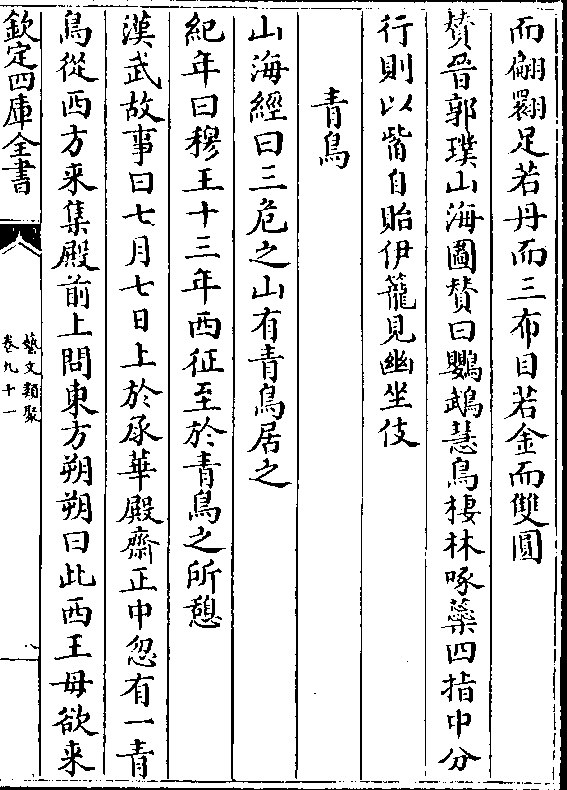 而翩翾足若丹而三布目若金而雙圓
賛晉郭璞山海圖賛曰鸚鵡慧鳥棲林啄蘂四指中分
行則以觜自貽伊籠見幽坐伎
青鳥
山海經曰三危之山有青鳥居之
紀年曰穆王十三年西征至於青鳥之所憩
漢武故事曰七月七日上於承華殿齋正中忽有一青
鳥從西方來集殿前上問東方朔朔曰此西王母欲来
欽定四庫全書
藝文類聚
卷九十一
八